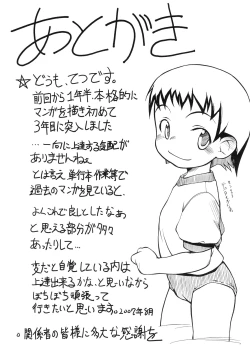 あとがき
☆どうも、てつです。
前回から1年半、本格的に
マンガを描き初めて
3年目に突入しました
…一向に上達する気配が
ありませんねぇ
とは言え、単行本作業等で
過去のマンガを見ていると、
よくこれで良しとしたなぁ
と思える部分が多々
あったりして…
まだと自覚している内は
上達出来るかな、と思いながら
ぼちぼち頑張って
行きたいと思います。2007年8月
。関係者の皆様に多大な感謝を